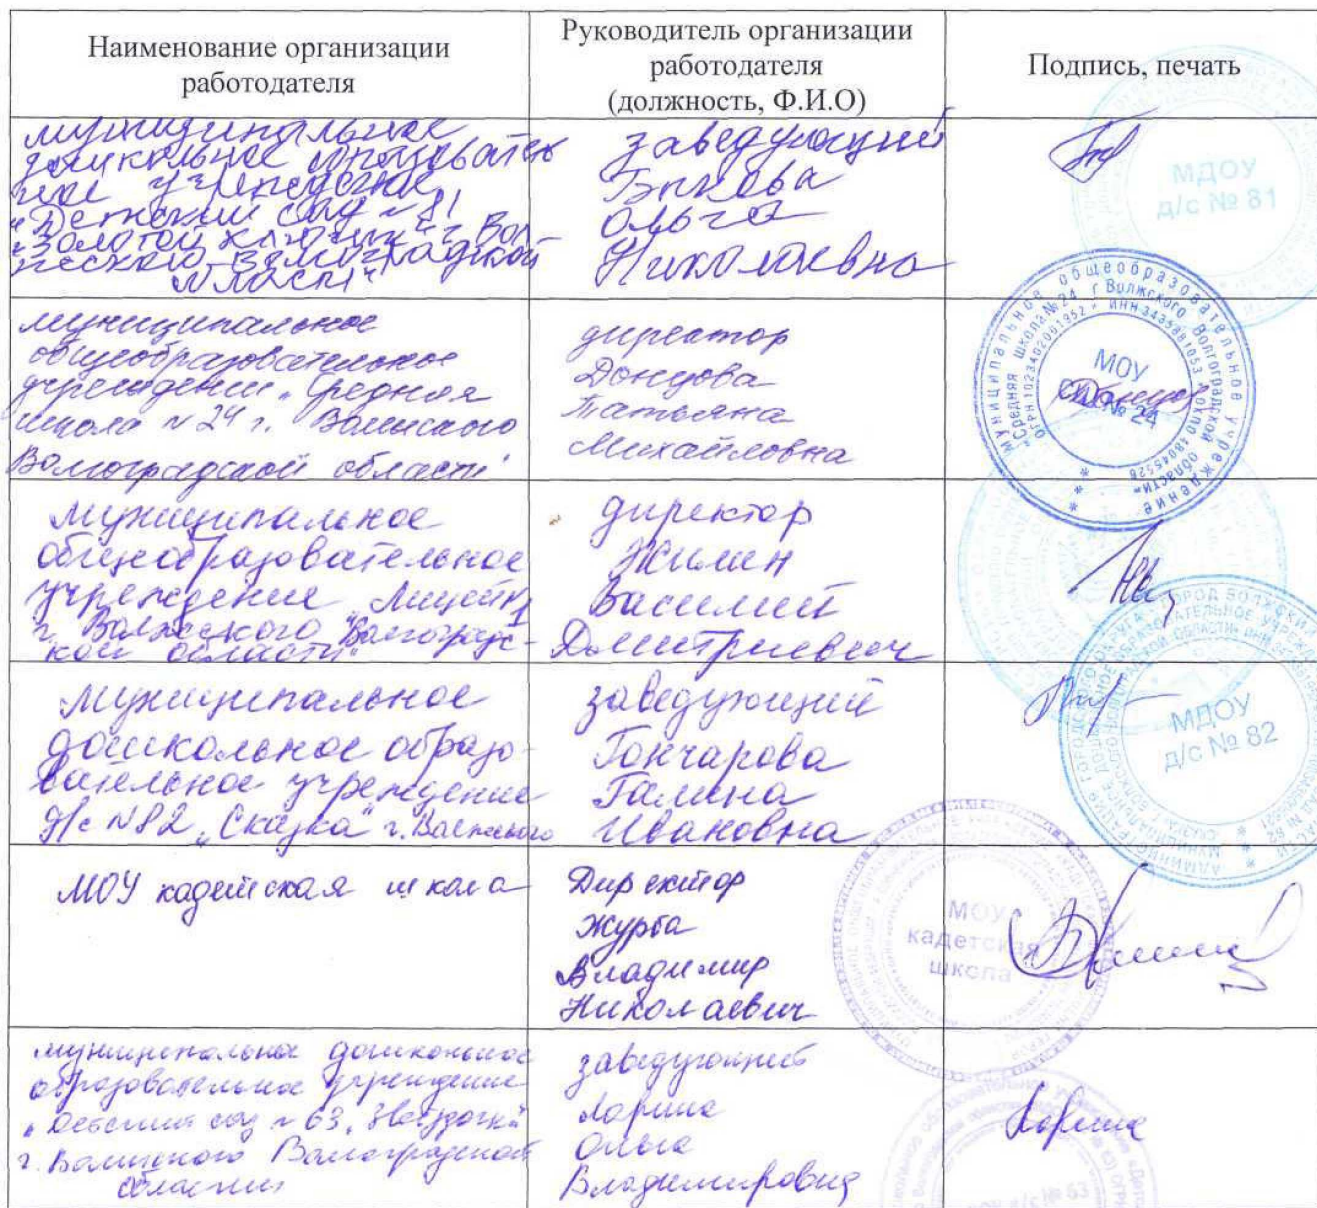 Наименование организации
работодателя
Руководитель организации
работодателя
(должность, Ф.И.О)
Подпись, печать
муниципальное
дошкольное образователь
ное учреждение
"Детский сад №81
"Золотой ключик" г. Вол
жского Волгоградской
области"
заведующий
Быкова
Ольга
Николаевна
МДОУ
д/с № 81
муниципальное
общеобразовательное
учреждение "Средняя
школа № 24 г. Волжского
Волгоградской области"
директор
Донцова
Татьяна
Михайловна
Муниципальное общеобразовательное учреждение
"Средняя школа № 24 г Волжского Волгоградской области"
ОГРН 1023402001952 * ИНН 3435881053 * ОКПО 48045528
МОУ
№ 24
муниципальное
общеобразовательное
учреждение "Лицей №1
г. Волжского Волгоградс-
кой области"
директор
Жилин
Василий
Дмитриевич
муниципальное
дошкольное образо-
вательное учреждение
д/с №82 "Сказка" г. Волжского
заведующий
Гончарова
Галина
Ивановна
МДОУ
д/с № 82
МОУ кадетская школа
Директор
Журба
Владимир
Николаевич
МОУ
кадетская
школа
муниципальное дошкольное
образовательное учреждение
"Детский сад № 63 "Звездочка"
г. Волжского Волгоградской
области
заведующий
Ларина
Ольга
Владимировна
д/с № 63